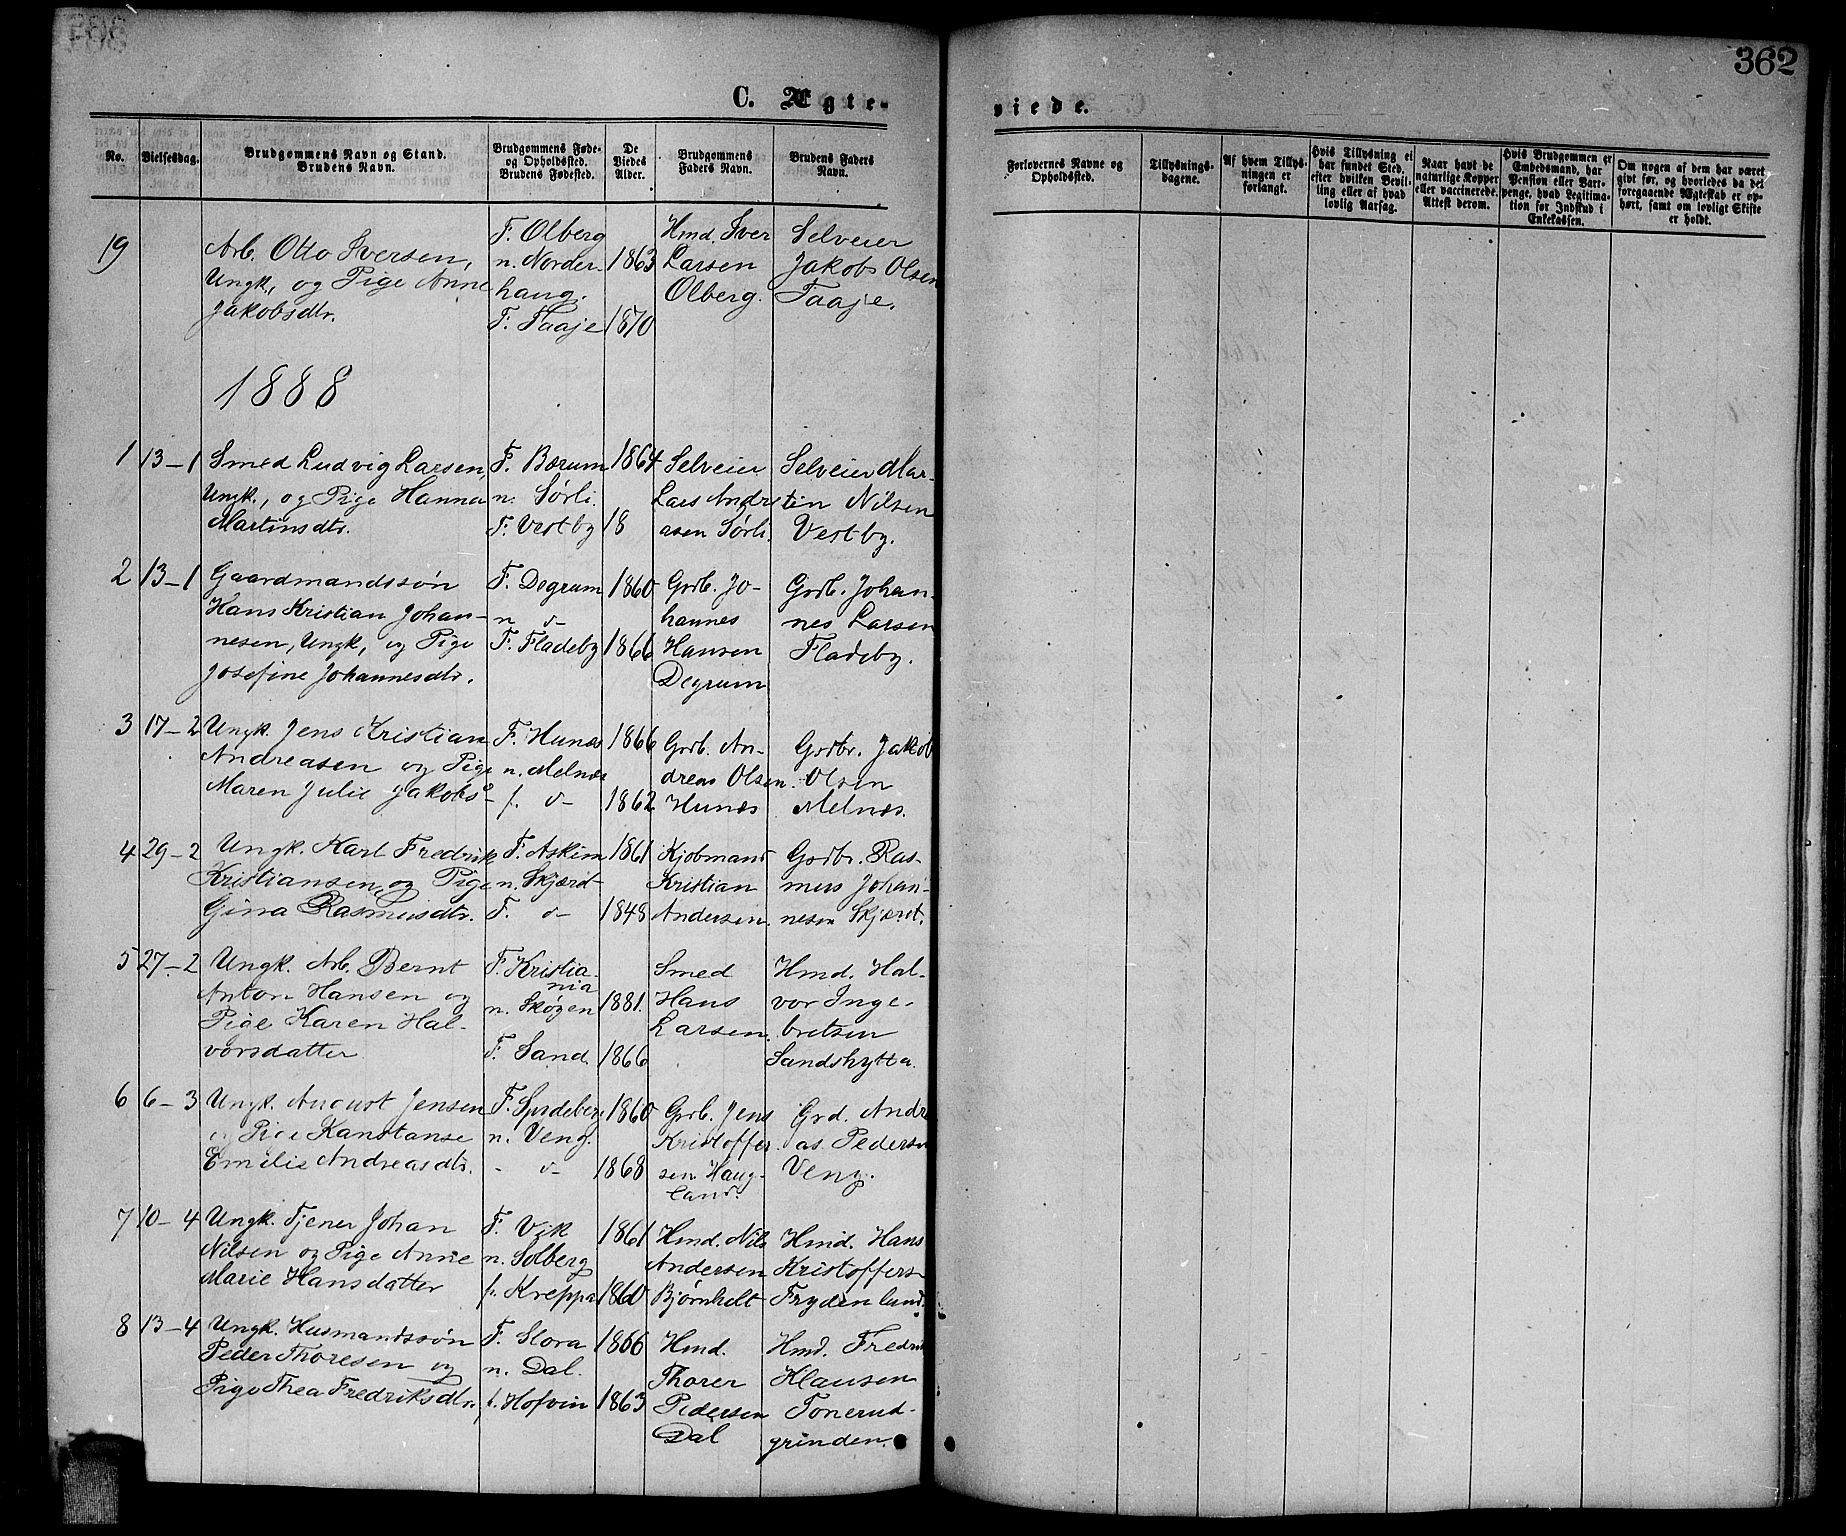 362
C. Ægte-
viede.
No.
Vielsesdag.
Brudgommens Navn og Stand.
Brudens Navn.
Brudgommens Føde-
og Opholdssted.
Brudens Fødested.
De
Viedes
Alder.
Brudgommens
Faders Navn.
Brudens Faders
Navn.
Forlovernes Navne og
Opholdssted.
Tillysnings-
dagene.
Af hvem Tillys-
ningen er
forlangt.
Hvis Tillysning ei
har fundet Sted,
efter hvilken Bevil-
ling eller af hvad
lovlig Aarsag.
Naar havt de
naturlige Kopper
eller vaccinerede.
Attest derom.
Hvis Brudgommen er
Embedsmand, har
Pension eller Vart-
penge, hvad Legitima-
tion for Indskud i
Enkekassen.
Om nogen af dem har været
gift før, og hvorledes da det
foregaaende Ægteskab er op-
hørt, samt om lovligt Skifte
er holdt.
19
Arb. Otto Iversen,
Ungk., og Pige Anne
Jakobsdtr.
F. Olberg
n. Norder-
haug.
F. Taaje
1863
1870
Hmd. Iver
Larsen
Olberg.
Selveier
Jakob Olsen
Taaje.
1888
1
13-1
Smed Ludvig Larsen,
Ungk., og Pige Hanna
Martinsdtr.
F. Bærum
n. Sørli
F. Vestby
1864
18
Selveier
Lars Andre-
asen Sørli.
Selveier Mar-
tin Nilsen
Vestby.
2
13-1
Gaardmandssøn
Hans Kristian Johan-
nesen, Ungk., og Pige
Josefine Johannesdtr.
F. Degrum
n. d-
F. Fladeby
1860
1866
Grdb. Jo-
hannes
Hansen
Degrum
Grdb. Johan-
nes Larsen
Fladeby.
3
17-2
Ungk. Jens Kristian
Andreasen og Pige
Maren Julie Jakobs-
F. Hunæs
n. Melnæs
f. d-
1866
1862
Grdb. An-
dreas Olsen
Hunæs
Grdbr. Jakob
Olsen
Melnæs.
4
29-2
Ungk. Karl Fredrik
Kristiansen, og Pige
Gina Rasmusdtr.
F. Askim
n. Skjært
F. d-
1861
1848
Kjøbmand
Kristian
Andersen
Grdbr. Ras-
mus Johan-
nesen Skjæret.
5
27-2
Ungk. Arb. Bernt
Anton Hansen og
Pige Karen Hal-
vorsdatter
F. Kristia-
nia
n. Skøyen
F. Sand
1881.
1866
Smed
Hans
Larsen.
Hmd. Hal-
vor Inge-
bretsen
Sandshytta.
6
6-3
Ungk. August Jensen
og Pige Kanstanse
Emilie Andreasdtr.
F. Spydeberg
n. Veng.
- d-
1860
1868
Grdb. Jens
Kristoffer-
sen Haug-
land.
Grd. Andre-
as Pedersen
Veng.
7
10-4
Ungk. Tjener Johan
Nilsen og Pige Anne
Marie Hansdatter
F. Vik
n. Solberg
f. Kreppa
1861
1860
Hmd. Nils
Andersen
Bjørnholt
Hmd. Hans
Kristoffers-
Frydenlund.
8
13-4
Ungk. Husmandssøn
Peder Thoresen og
Pige Thea Fredriksdtr.
F. Slora
n. Dal.
f. Hofvin
1866
1863
Hmd.
Thorer
Pedersen
Dal
Hmd. Fredrik
Klausen
Tonerud-
grinden.